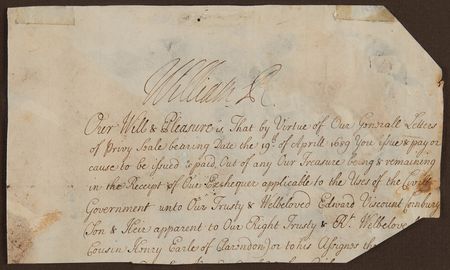 William R
Our Will & Pleasure is, That by Virtue of Our Generall Letters
of Privy Seale bearing Date the 19th of Aprill 1689 You issue & pay or
cause to be issued & paid, out of any Our Treasure being & remaining
in the Receipt of Our Exchequer applicable to the Uses of the Civill
Government unto Our Trusty & Welbeloved Edward Viscount Cornbury
Son & Heir apparent to Our Right Trusty & Rt. Welbeloved
Cousin Henry Earle of Clarendon) or to his Assignes the